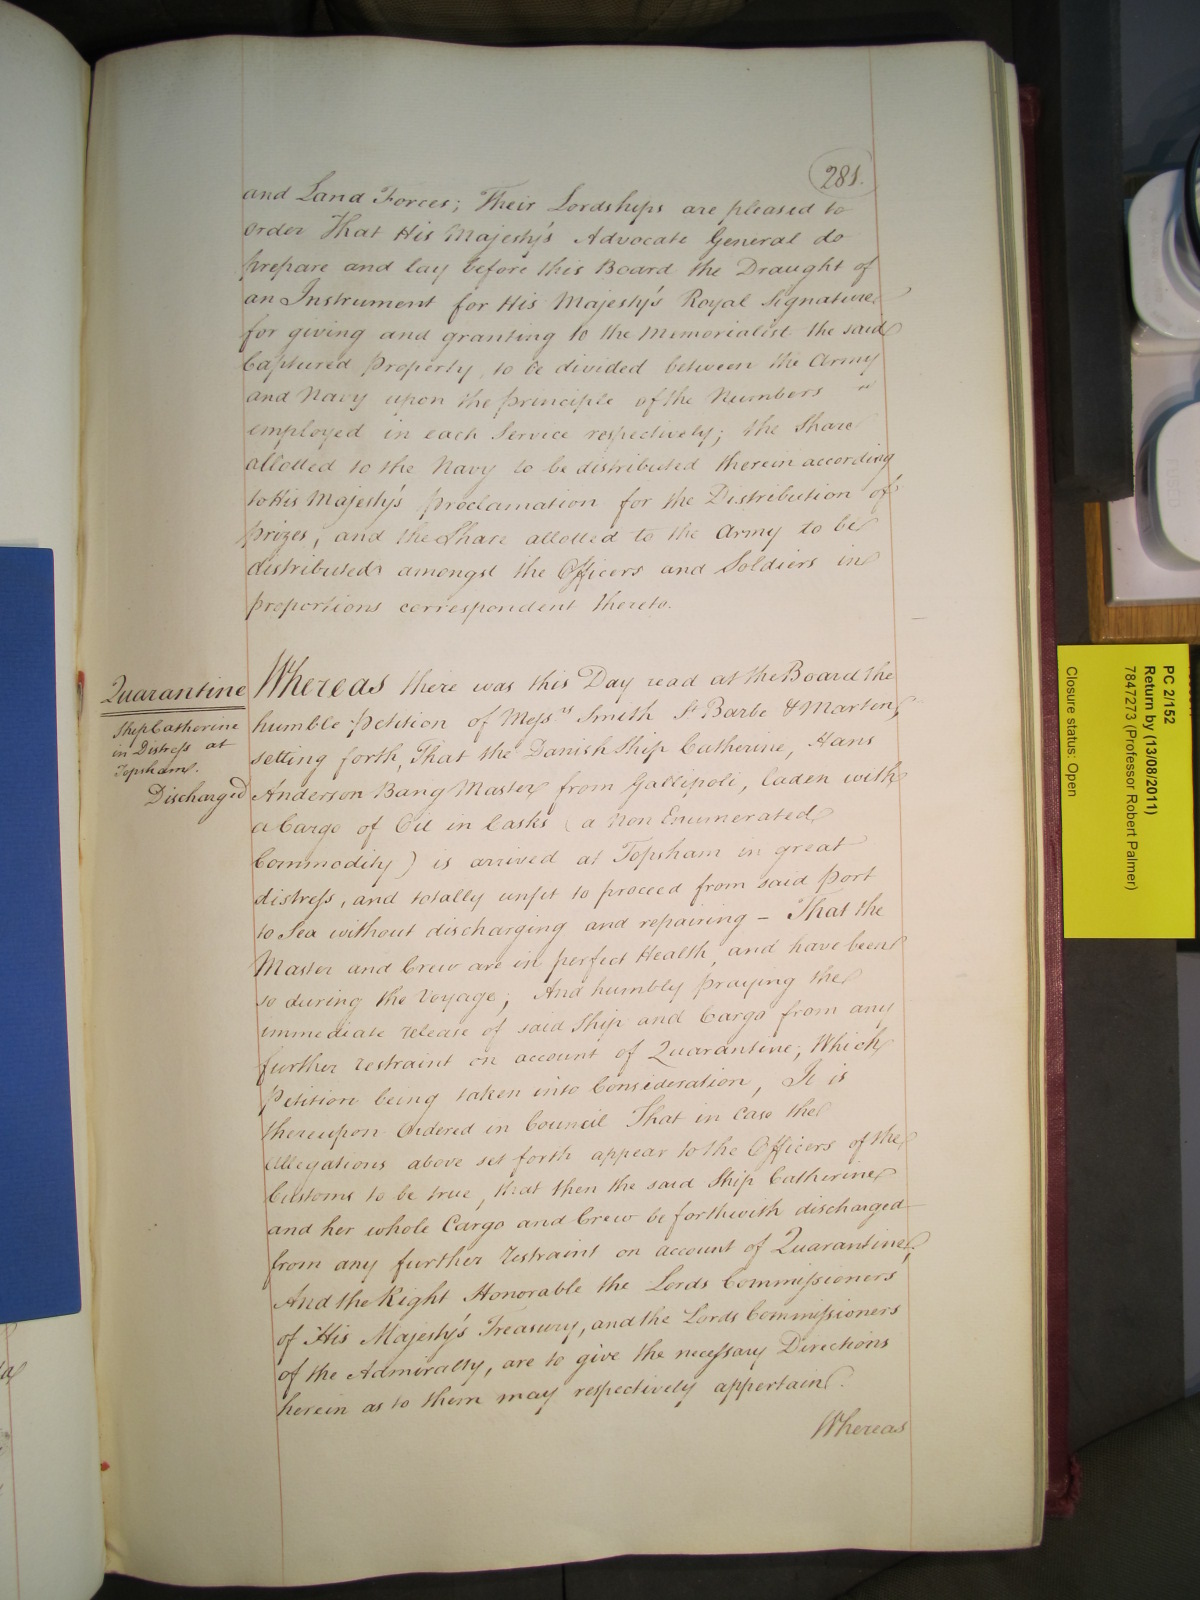 281.
and Land Forces; Their Lordships are pleased to
order That His Majesty's Advocate General do
prepare and lay before this Board the Draught of
an Instrument for His Majesty's Royal Signature
for giving and granting to the Memorialist the said
Captured Property, to be divided between the Army
and Navy upon the principle of the Numbers "
employed in each Service respectively; the Share
allotted to the Navy to be distributed therein according
to His Majesty's Proclamation for the Distribution of
prizes, and the Share allotted to the Army to be
distributed amongst the Officers and Soldiers in
proportions correspondent thereto.
Quarantine
Ship Catherine
in Distress at
Topsham.
Discharged
Whereas there was this Day read at the Board the
humble petition of Messrs Smith St Barbe & Marten,
setting forth, That the Danish Ship Catherine, Hans
Anderson Bang Master from Gallipoli, laden with
a Cargo of Oil in Casks (a Non Enumerated
Commodity) is arrived at Topsham in great
distress, and totally unfit to proceed from said Port
to Sea without discharging and repairing – That the
Master and Crew are in perfect Health, and have been
so during the Voyage; And humbly praying the
immediate release of said Ship and Cargo from any
further restraint on account of Quarantine; Which
Petition being taken into Consideration, It is
thereupon Ordered in Council That in case the
Allegations above set forth appear to the Officers of the
Customs to be true, that then the said Ship Catherine
and her whole Cargo and Crew be forthwith discharged
from any further restraint on account of Quarantine;
And the Right Honorable the Lords Commissioners
of His Majesty's Treasury, and the Lords Commissioners
of the Admiralty, are to give the necessary Directions
herein as to them may respectively appertain.
Whereas
PC 2/152
Return by (13/08/2011)
7847273 (Professor Robert Palmer)
Closure status: Open